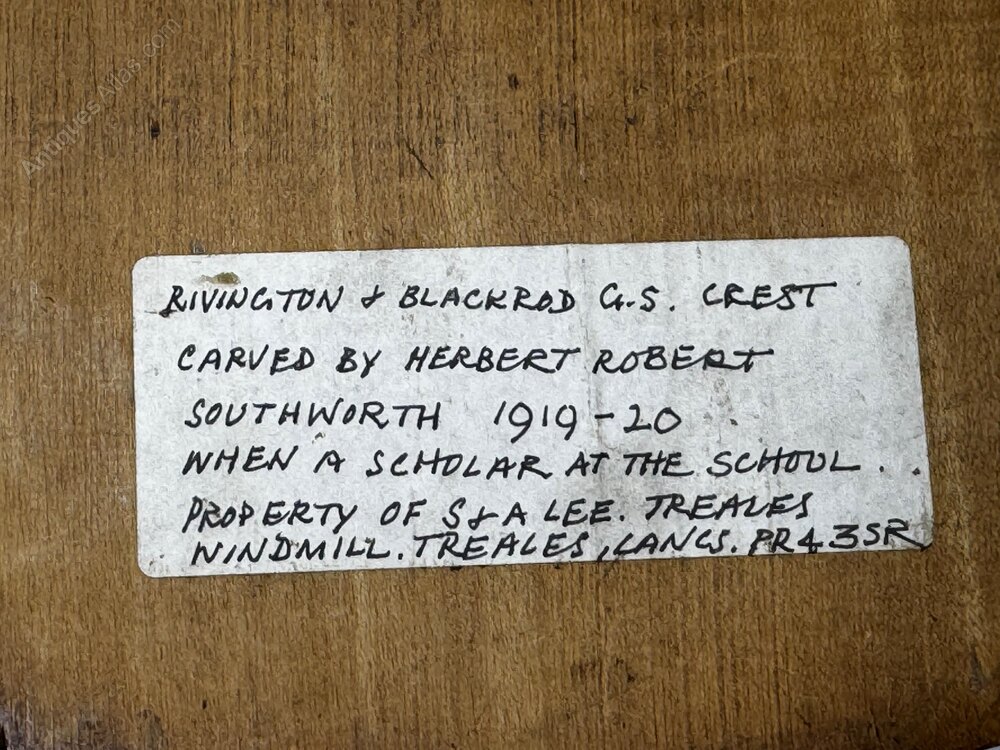 Antiques Atlas.com
RIVINGTON & BLACKROD G.S. CREST
CARVED BY HERBERT ROBERT
SOUTHWORTH 1919-20
WHEN A SCHOLAR AT THE SCHOOL.
PROPERTY OF S & A LEE. TREALES
WINDMILL. TREALES, LANCS. PR4 3SR